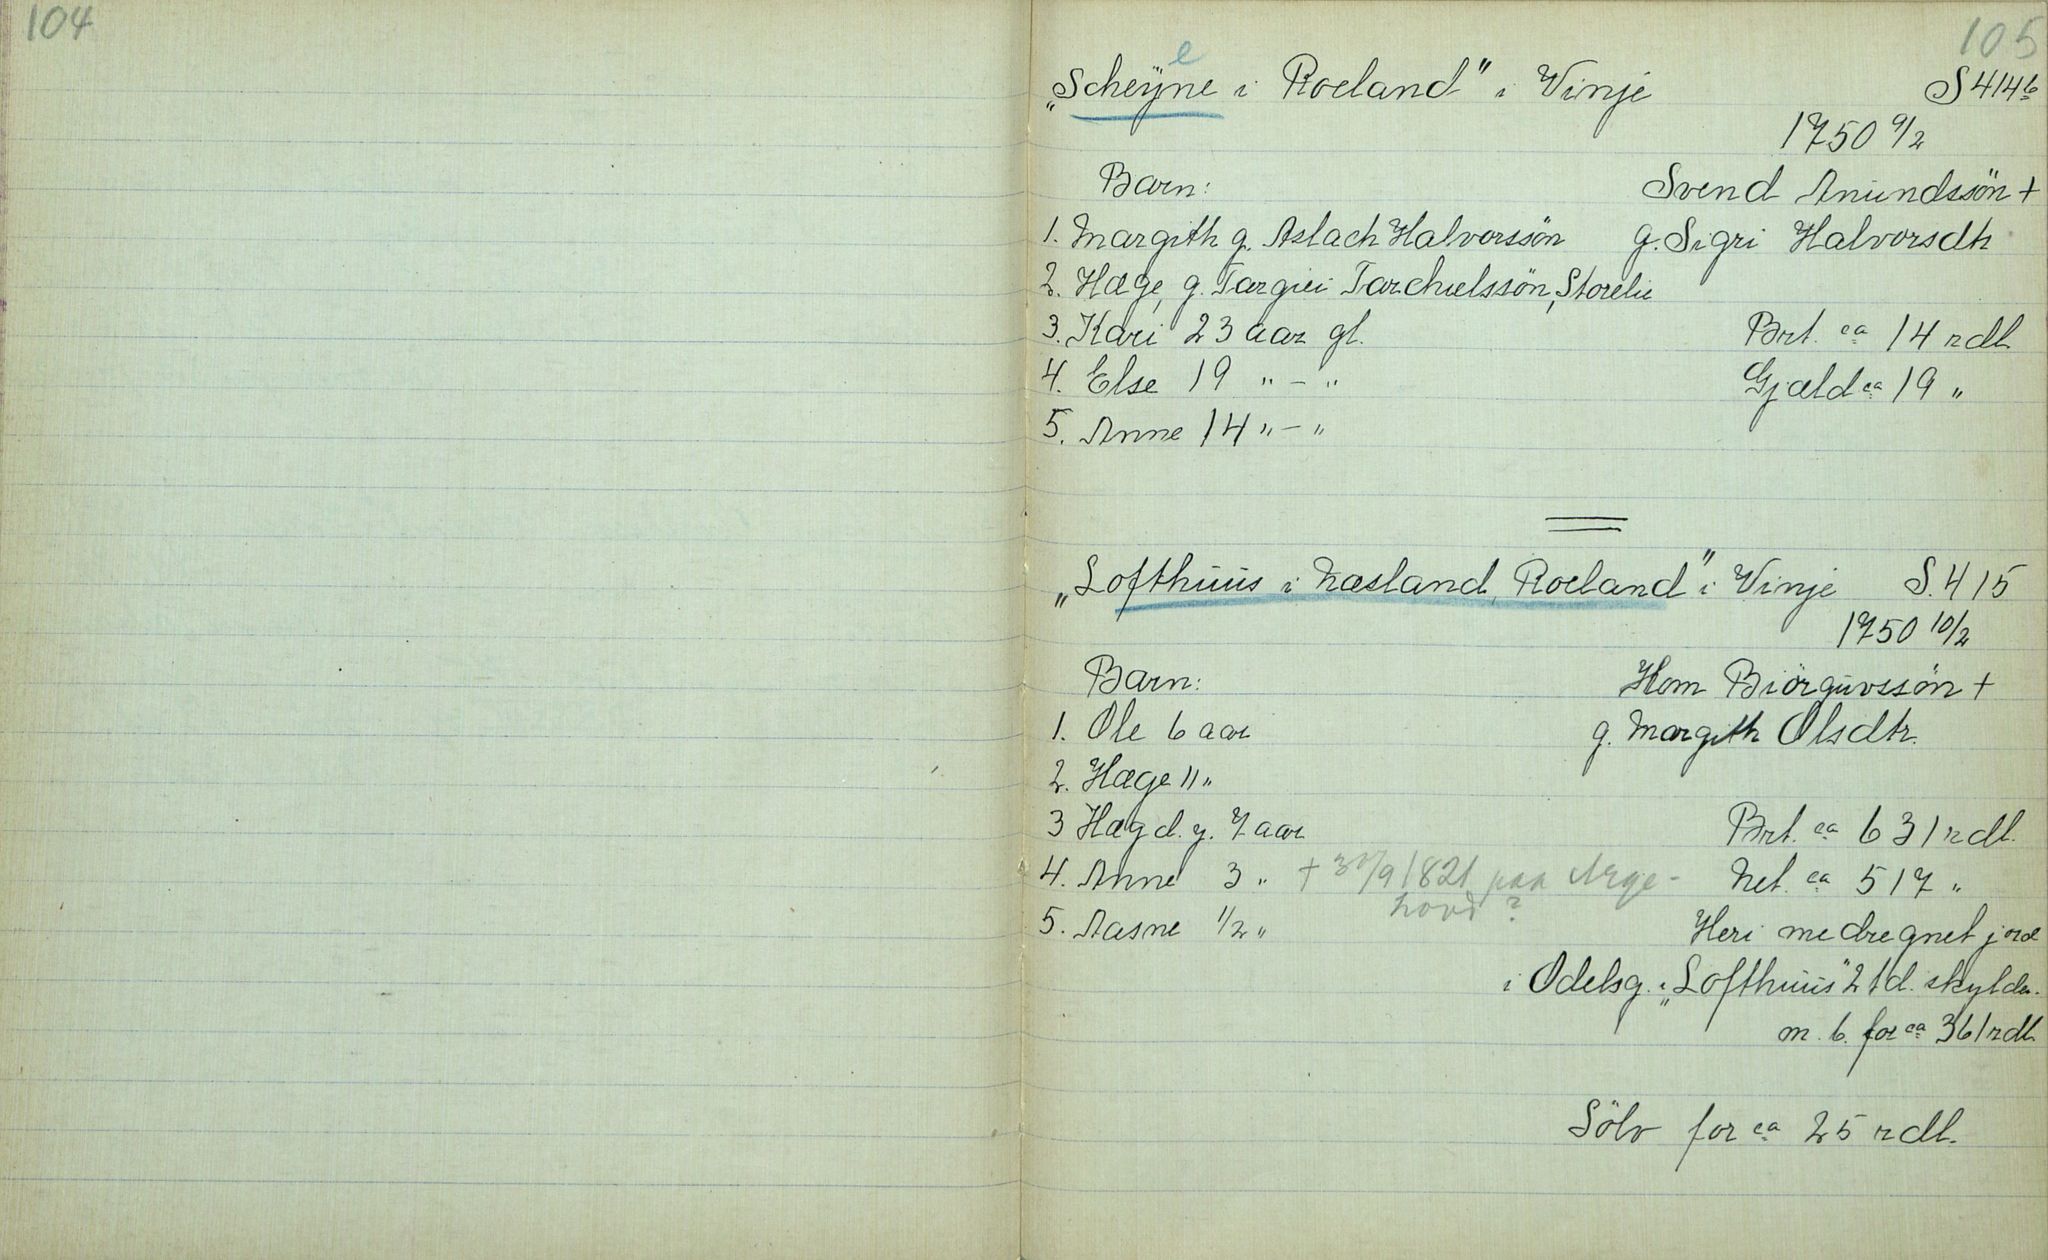 104
105
e
„Scheÿne i Roeland" i Vinje S 414 b
1750 9/2
Barn: Svend Anundssön +
1. Margith g. Aslach Halvorssön g. Sigri Halvorsdtr
2. Hæge, g. Targiei Tarchielssön, Storelie
3. Kari 23 aar gl. Brt. ca 14 rdl.
4. Else 19 " – " Gjæld ca 19 "
5. Anne 14 " – "
„Lofthuus i Næsland, Roeland" i Vinje S. 415
1750 10/2
Barn: Hom Biörguvssön +
1. Ole 6 aar g. Margith Olsdtr.
2. Hæge 11 "
3 Hæg d. y. 7 aar Brt. ca 631 rdl.
4. Anne 3 " + 30/9 1821 paa Arge- Net. ca 517 "
hovd ?
5. Aasne 1/2 " Heri medregnet jord
i Odelsg. i „Lofthuus" 2 td. skylder
m. b. for ca 361 rdl.
Sölv for ca 25 rdl.